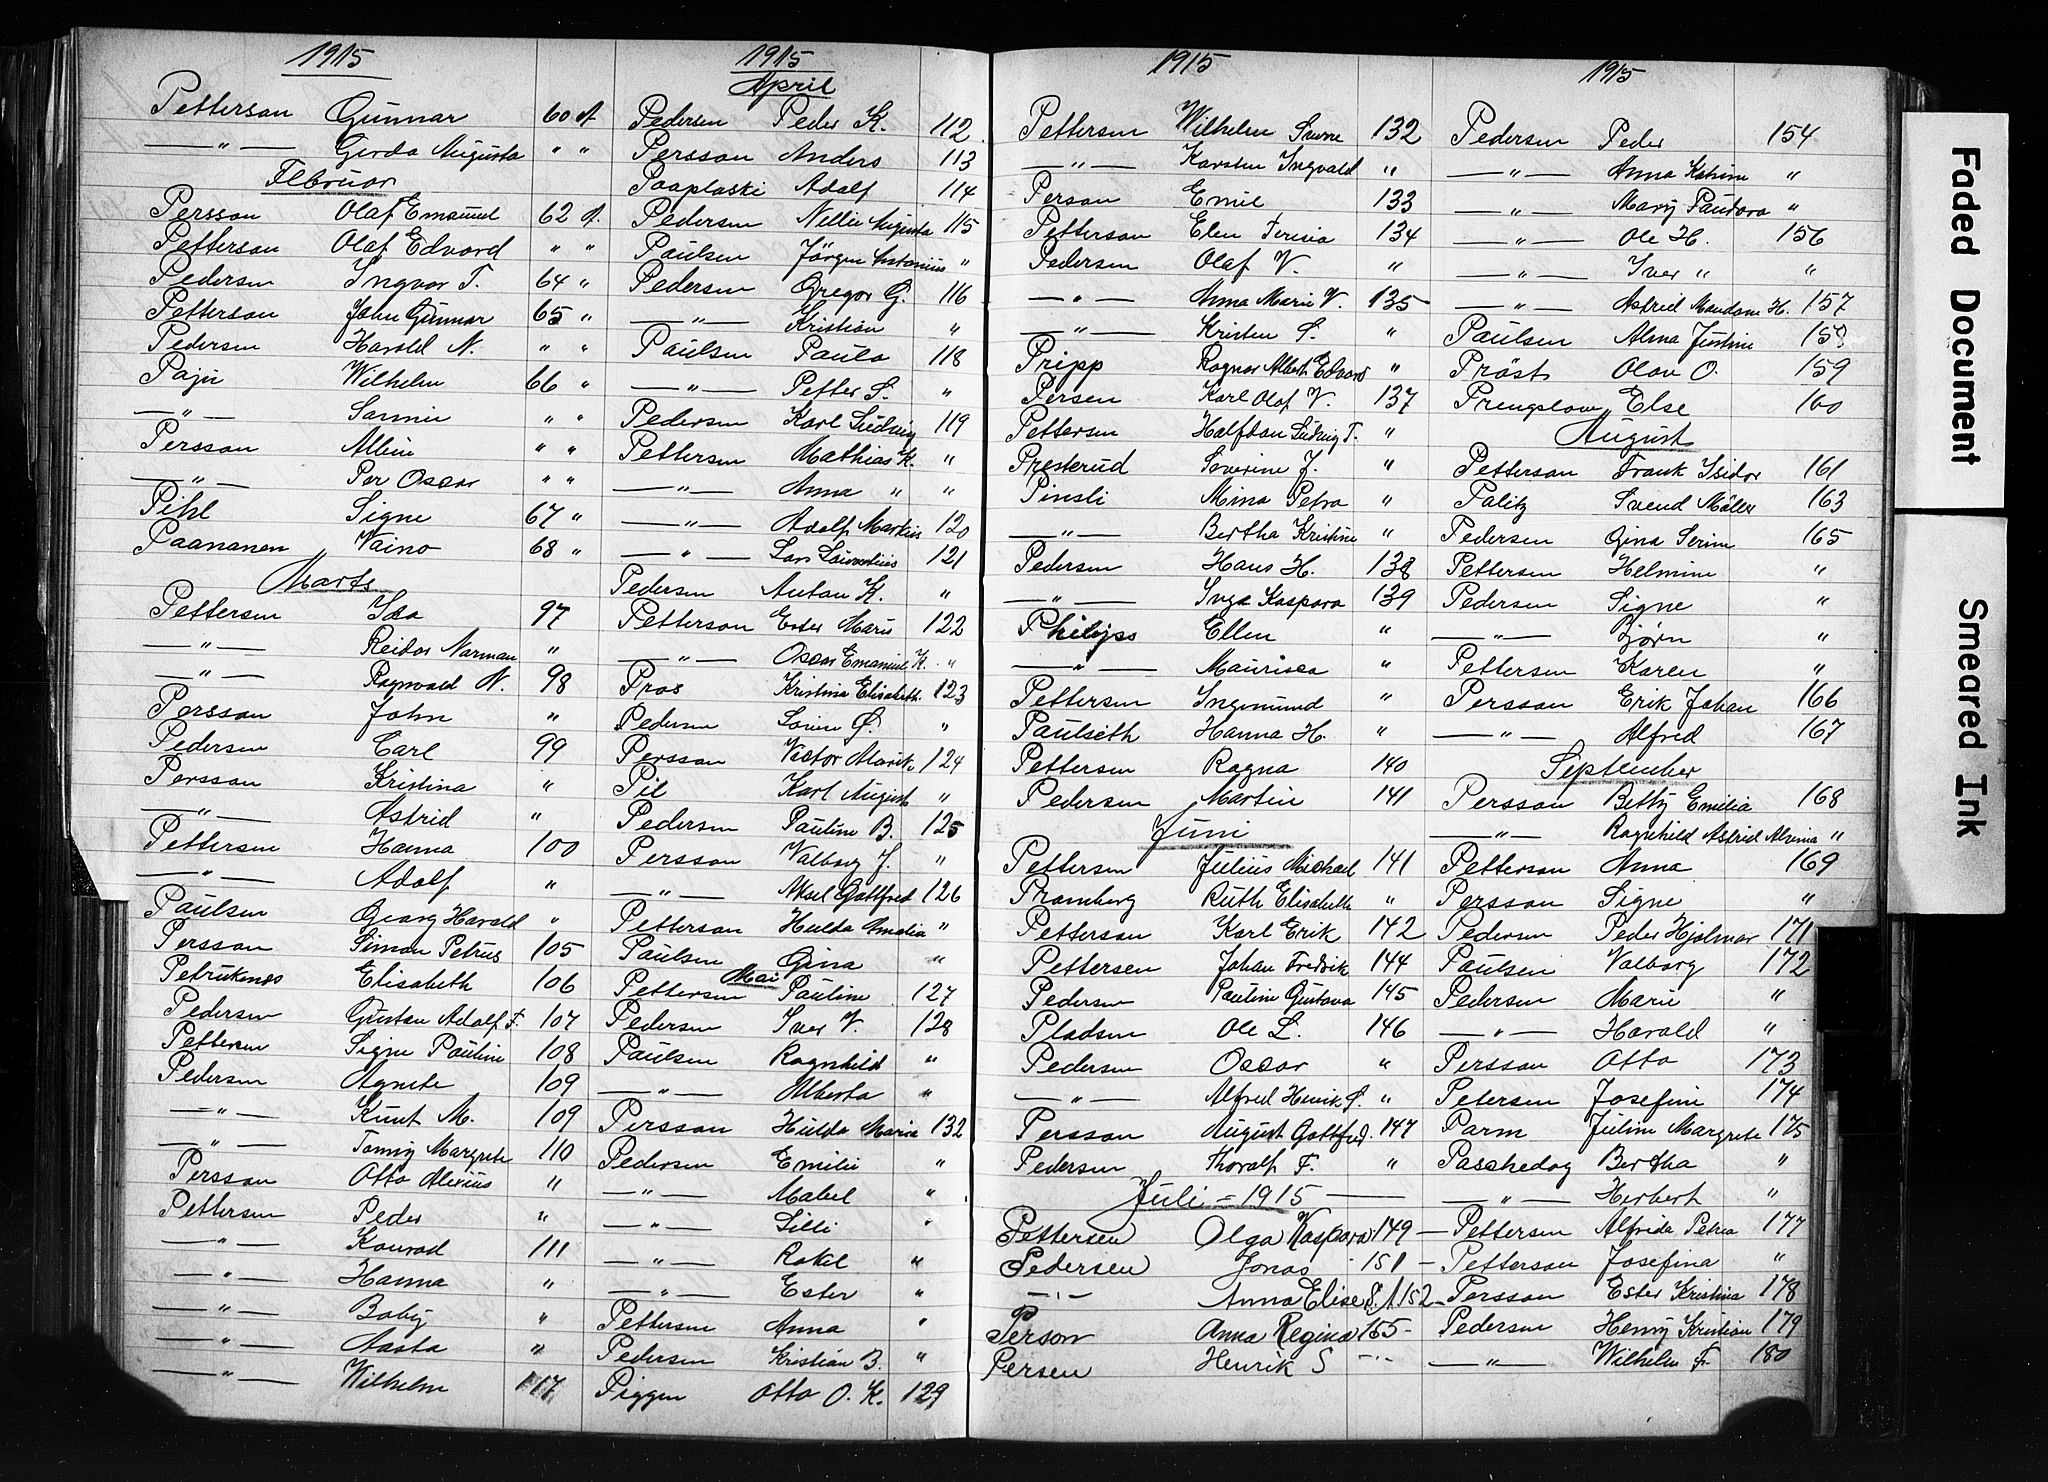 1915
Petterson Gunnar 60 A
—"— Gerda Augusta " "
Februar
Persson Olaf Emanuel 62 A.
Petterson Olaf Edvard " "
Pedersen Ingvar T. 64 "
Petterson John Gunnar 65 "
Pedersen Harald N. " "
Paju Wilhelm 66 "
—"— Sannie " "
Persson Albin " "
—"— Per Oscar " "
Pihl Signe 67 "
Paananen Vaino 68 "
Marts
Pettersen Isa 97
—"— Reidar Narman "
—"— Ragnvald N. 98
Persson John "
Pedersen Carl 99
Persson Kristina "
—"— Astrid "
Pettersen Hanna 100
—"— Adolf "
Paulsen Georg Harald "
Persson Simon Petrus 105
Petrukenas Elisabeth 106
Pedersen Gustav Adolf F. 107
Pettersen Signe Pauline 108
Pedersen Agnete 109
—"— Knut M. 109
—"— Tanny Margrete 110
Persson Otto Alerius "
Pettersen Peder "
—"— Konrad 111
—"— Hanna "
—"— Baby "
—"— Aasta "
—"— Wilhelm 117
1915
April
Pedersen Peder K. 112
Persson Anders 113
Paaplaski Adolf 114
Pedersen Nellie Augusta 115
Paulsen Jörgen Antonius "
Pedersen Gregor G. 116
—"— Kristian "
Paulsen Paula 118
—"— Petter S. "
Pedersen Karl Ludvig 119
Pettersen Mathias K. "
—"— Anna " "
—"— Adolf Markus 120
—"— Lars Laurentius 121
Pedersen Anton K. "
Petterson Ester Marie 122
—"— Oscar Emanuel K. "
Pras Kristina Elisabeth 123
Pedersen Sören Ø. "
Persson Victor Alarik 124
Pil Karl August "
Pedersen Pauline B. 125
Persson Valborg J. "
—"— Aksel Gottfred 126
Petterson Hulda Amalia "
Paulsen Gina "
Mai
Pettersen Pauline 127
Pedersen Iver V. 128
Paulsen Ragnhild "
—"— Alberta "
Persson Hulda Maria 132
Pedersen Emilie "
—"— Mabel "
—"— Lilli "
—"— Rakel "
—"— Ester "
Pettersen Anna "
Pedersen Kristian B. "
Piggen Otto O. K. 129
1915
Pettersen Wilhelm Sverre 132
—"— Karsten Ingvald "
Person Emil 133
Petterson Elen Teresia 134
Pedersen Olaf V. "
—"— Anna Marie V. 135
—"— Kristen S. "
Pripp Ragnar Albert Edvard "
Persen Karl Olaf V. 137
Pettersen Halfdan Ludvig T. "
Presterud Severine J. "
Pinsli Mina Petra "
—"— Bertha Kristine "
Pedersen Hans H. 138
—"— Inga Kaspara 139
Philipss Ellen "
—"— Maurisea "
Pettersen Ingemund "
Paulseth Hanna H. "
Pettersen Ragna 140
Pedersen Martin 141
Juni
Pettersen Julius Michael 141
Pramberg Ruth Elisabeth "
Petterson Karl Erik 142
Pettersen Johan Fredrik 144
Pedersen Pauline Gustava 145
Pladsen Ole L. 146
Pedersen Oscar "
—"— Alfred Henrik S. "
Persson August Gottfred. 147
Pedersen Thoralf F. "
Juli = 1915
Pettersen Olga Kaspara 149 —
Pedersen Jonas 151 —
—"— Anna Elise S. A 152 —
Person Anna Regina 155 —
Persen Henrik S —"—
1915
Pedersen Peder 154
—"— Anna Katrine "
—"— Mary Pandora "
—"— Ole H. 156
—"— Iver " "
—"— Astrid Mandam H. 157
Paulsen Alma Justine 158
Pröst Olav O. 159
Prengslow Else 160
August
Petterson Frank Isidor 161
Palitz Svend Möller 163
Pedersen Gina Serine 165
Pettersen Helmine "
Pedersen Signe "
—"— Bjørn "
Pettersen Karen "
Persson Erik Johan 166
—"— Alfred 167
September
Persson Betty Emilia 168
—"— Ragnhild Astrid Alvina "
Petterson Anna 169
Persson Signe "
Pedersen Peder Hjalmar 171
Paulsen Valborg 172
Pedersen Marie "
—"— Harald "
Persson Otto 173
Petersen Josefine 174
Parm Juline Margrete 175
Paschedag Bertha "
—"— Herbert "
Pettersen Alfrida Petra 177
Petterson Josefina "
Persson Ester Kristina 178
Pedersen Henry Kristian 179
—"— Wilhelm F. 180
Faded Document
Smeared Ink